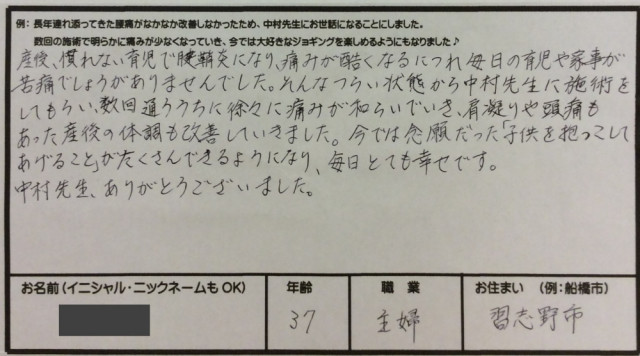 例:長年連れ添ってきた腰痛がなかなか改善しなかったため、中村先生にお世話になることにしました。
数回の施術で明らかに痛みが少なくなっていき、今では大好きなジョギングを楽しめるようにもなりました♪
産後、慣れない育児で腱鞘炎になり、痛みが酷くなるにつれ毎日の育児や家事が
苦痛でしょうがありませんでした。そんなつらい状態から中村先生に施術を
してもらい、数回通ううちに徐々に痛みが和らいでいき、肩凝りや頭痛も
あった産後の体調も改善していきました。今では念願だった「子供を抱っこして
あげること」がたくさんできるようになり、毎日とても幸せです。
中村先生、ありがとうございました。
お名前(イニシャル・ニックネームもOK) 年齢 職業 お住まい (例:船橋市)
37 主婦 習志野市